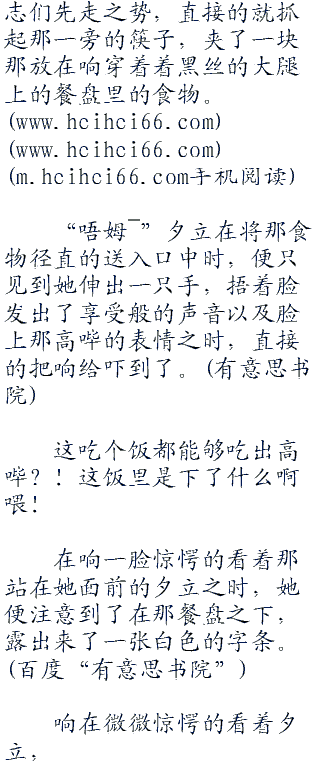 志们先走之势，直接的就抓
起那一旁的筷子，夹了一块
那放在响穿着着黑丝的大腿
上的餐盘里的食物。
(www.hcihci66.com)
(www.hcihci66.com)
(m.hcihci66.com手机阅读)
“唔姆¯”夕立在将那食
物径直的送入口中时，便只
见到她伸出一只手，捂着脸
发出了享受般的声音以及脸
上那高哔的表情之时，直接
的把响给吓到了。(有意思书
院)
这吃个饭都能够吃出高
哔？！这饭里是下了什么啊
喂！
在响一脸惊愕的看着那
站在她面前的夕立之时，她
便注意到了在那餐盘之下，
露出来了一张白色的字条。
(百度“有意思书院”)
响在微微惊愕的看着夕
立，